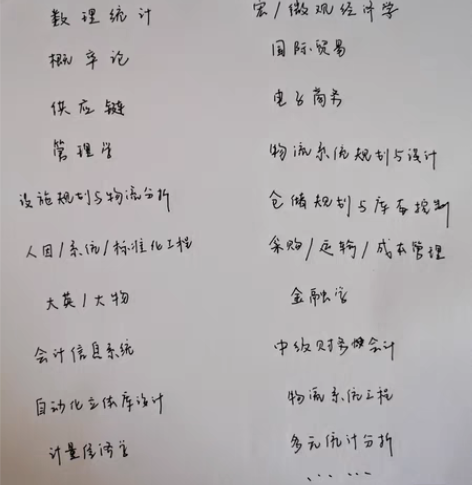 数理统计
概率论
供应链
管理学
设施规划与物流分析
人因/系统/标准化工程
大英/大物
会计信息系统
自动化立体库设计
计量经济学
宏/微观经济学
国际贸易
电子商务
物流系统规划与设计
仓储规划与库存控制
采购/运输/成本管理
金融学
中级财务会计
物流系统工程
多元统计分析
······